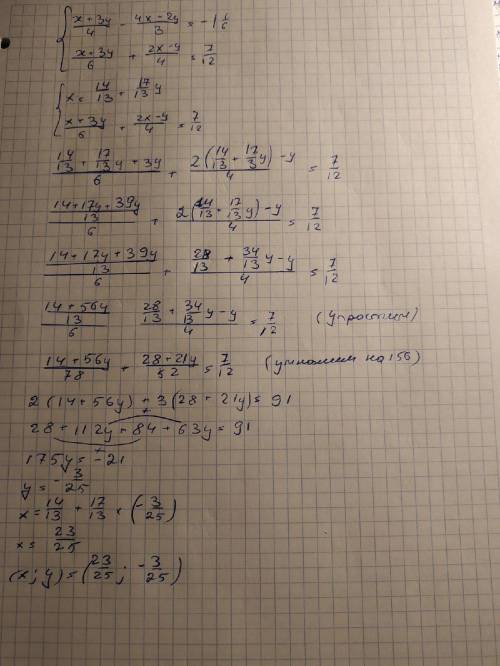 { (x+3y)/4 - (4x-2y)/3 = -1 1/6
(x+3y)/6 + (2x-y)/4 = 7/12
{ x = 14/13 + 17/13 y
(x+3y)/6 + (2x-y)/4 = 7/12
(14/13 + 17/13 y + 3y)/6 + (2(14/13 + 17/13 y) - y)/4 = 7/12
((14+17y+39y)/13)/6 + (2(14/13 + 17/13 y) - y)/4 = 7/12
((14+17y+39y)/13)/6 + (28/13 + 34/13 y - y)/4 = 7/12
((14+56y)/13)/6 (28/13 + 34/13 y - y)/4 = 7/12 (упростим)
(14+56y)/78 + (28+21y)/52 = 7/12 (умножим на 156)
2(14+56y) + 3(28+21y) = 91
28+112y+84+63y=91
175y = -21
y = -3/25
x = 14/13 + 17/13 × (-3/25)
x = 23/25
(x; y) = (23/25; -3/25)